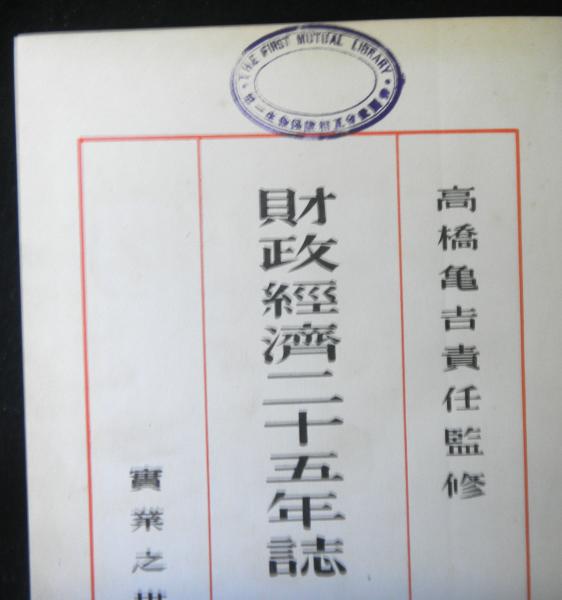 THE FIRST MUTUAL LIBRARY
高橋亀吉責任監修
財政經濟二十五年誌
實業之世